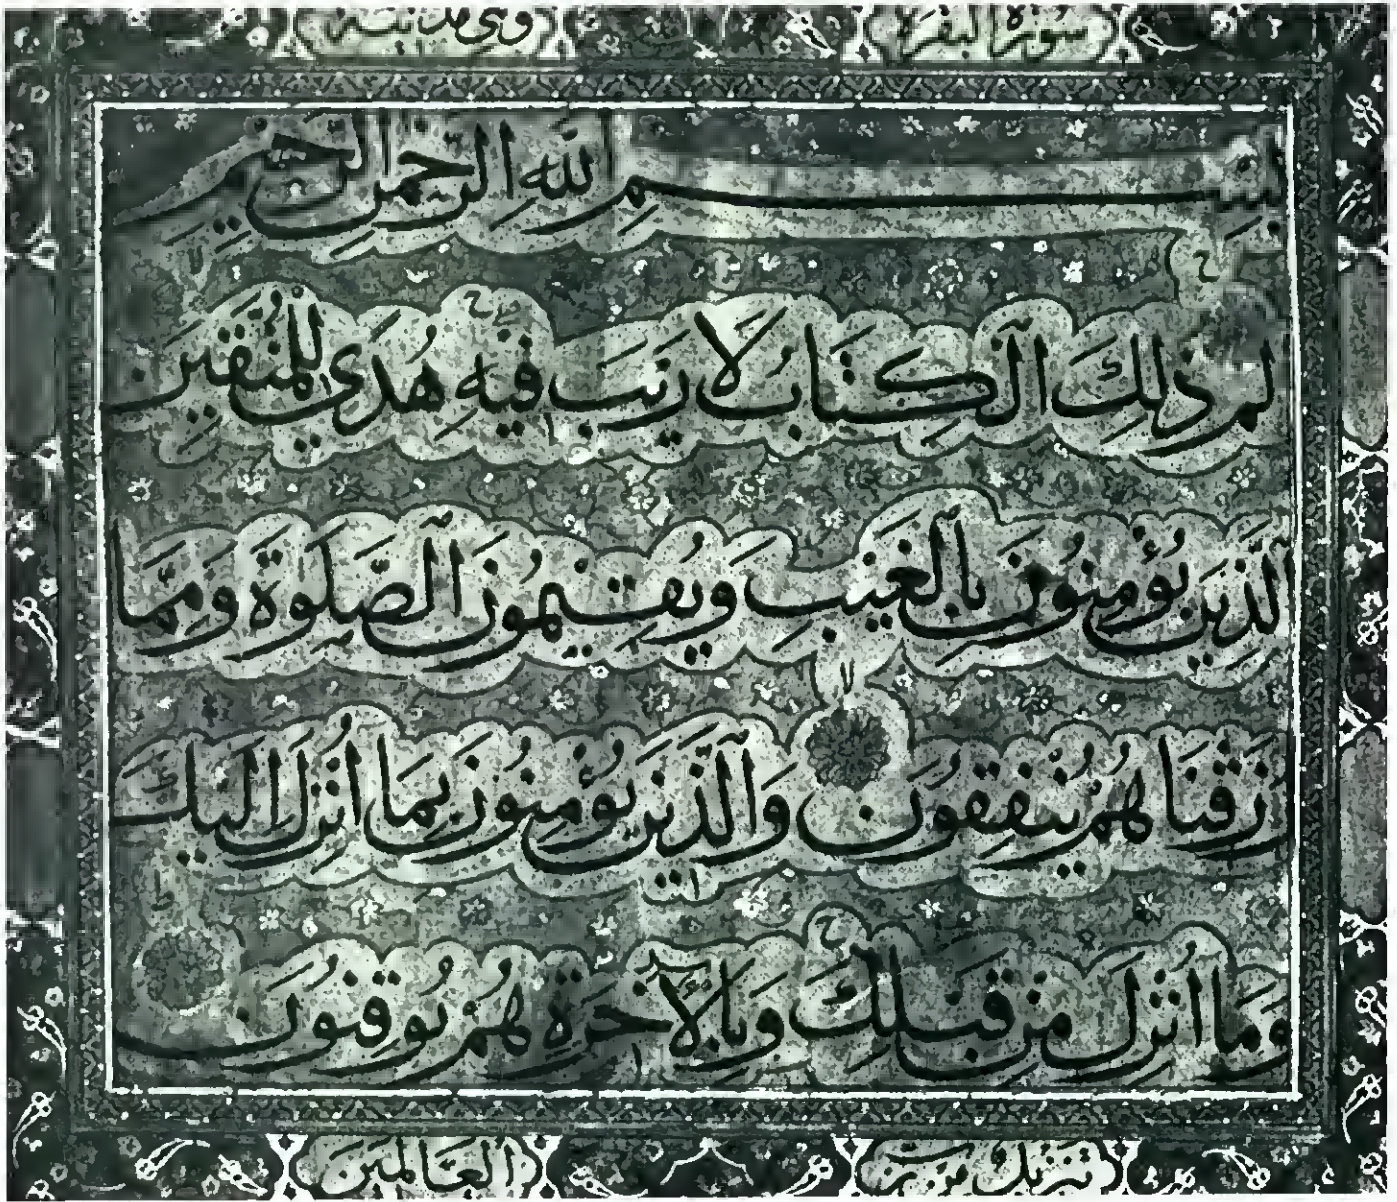 سورة البقرة وهي مدنية
بِسْمِ اللهِ الرَّحْمٰنِ الرَّحِيمِ
الم ذٰلِكَ الْكِتَابُ لَا رَيْبَ فِيهِ هُدًى لِلْمُتَّقِينَ
الَّذِينَ يُؤْمِنُونَ بِالْغَيْبِ وَيُقِيمُونَ الصَّلٰوةَ وَمِمَّا
رَزَقْنَاهُمْ يُنْفِقُونَ وَالَّذِينَ يُؤْمِنُونَ بِمَا اُنْزِلَ اِلَيْكَ
وَمَا اُنْزِلَ مِنْ قَبْلِكَ وَبِالْاٰخِرَةِ هُمْ يُوقِنُونَ
تنزيل من رب العالمين